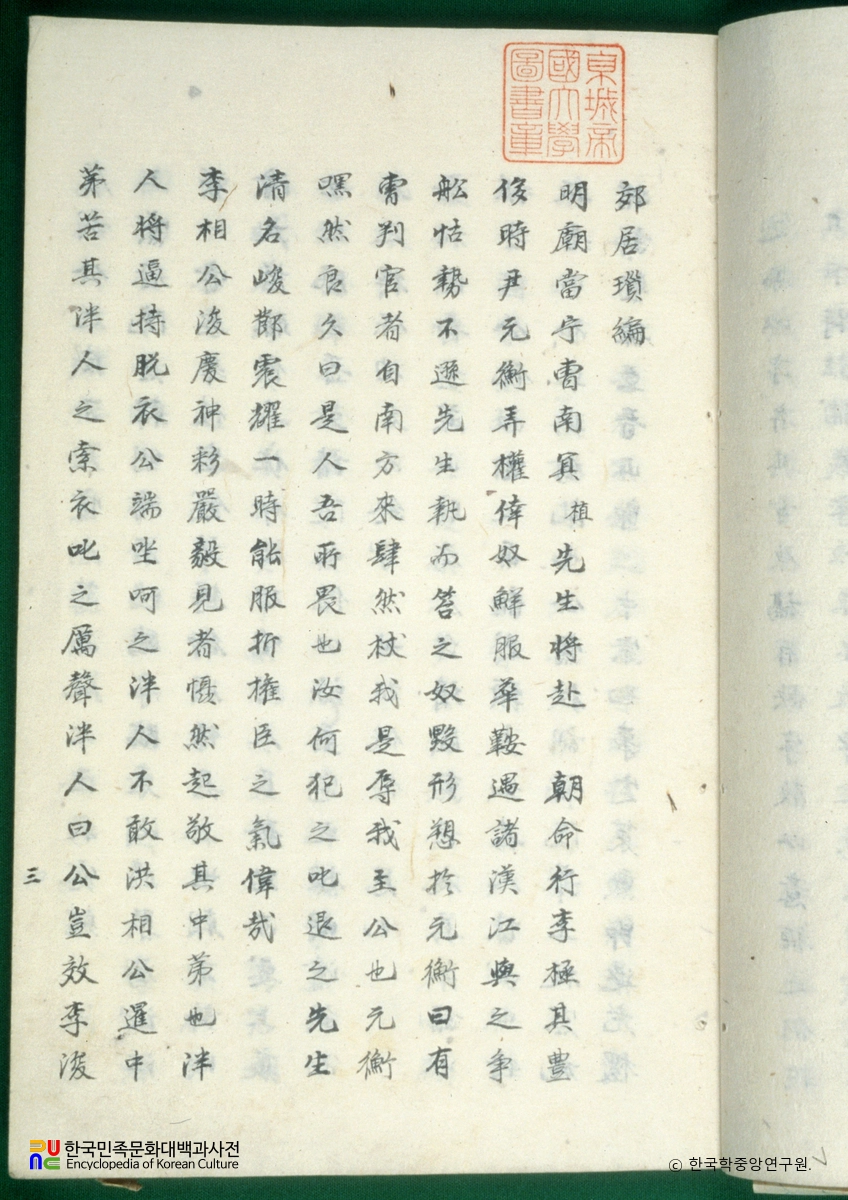 京城帝
國大學
圖書章
郊居瑣編
明廟當宁曺南冥植先生將赴 朝命行李極其豊
侈時尹元衡弄權倖奴鮮服華鞍遇諸漢江與之爭
舩怙勢不遜先生執而笞之奴毀形愬於元衡曰有
曺判官者自南方來肆然杖我是辱我至公也元衡
嘿然良久曰是人吾所畏也汝何犯之叱退之先生
清名峻節震耀一時能服折權臣之氣偉哉
李相公浚慶神彩嚴毅見者懾然起敬其中苐也泮
人將逼持脫衣公端坐呵之泮人不敢洪相公暹中
苐若其泮人之索衣叱之厲聲泮人曰公豈效李浚
三
한국민족문화대백과사전
Encyclopedia of Korean Culture
© 한국학중앙연구원.